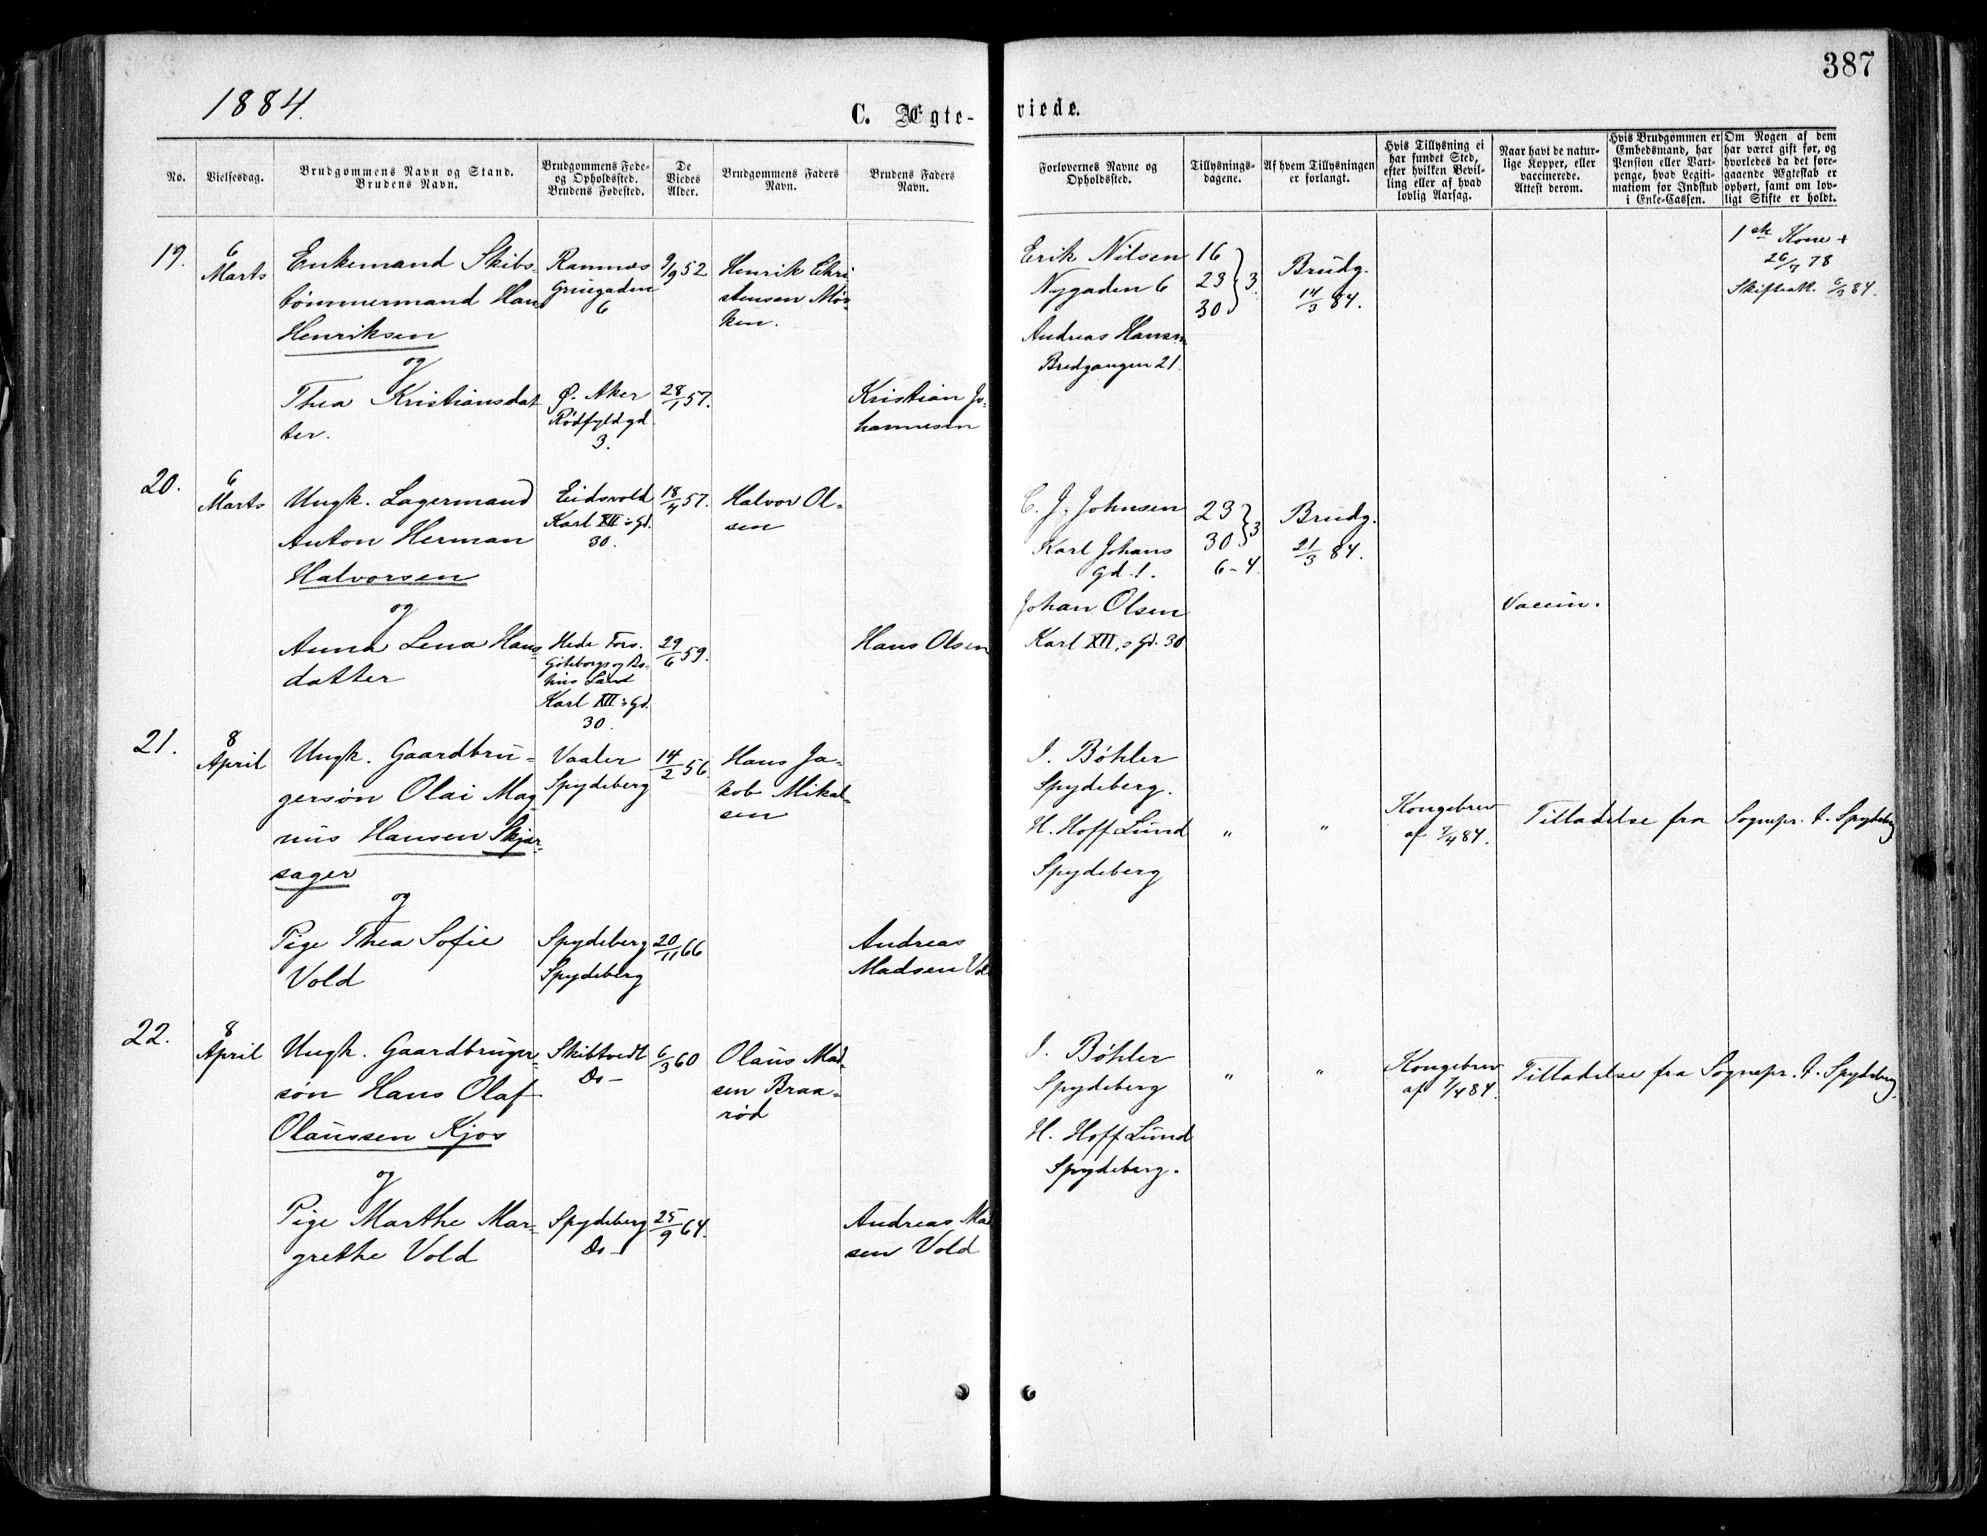 387
1884.
C. Ægte-
viede.
No.
Vielsesdag.
Brudgommens Navn og Stand.
Brudens Navn.
Brudgommens Føde-
og Opholdssted.
Brudens Fødested.
De
Viedes
Alder.
Brudgommens Faders
Navn.
Brudens Faders
Navn.
Forlovernes Navne og
Opholdssted.
Tillysnings-
dagene.
Af hvem Tillysningen
er forlangt.
Hvis Tillysning ei
har fundet Sted,
efter hvilken Bevil-
ling eller af hvad
lovlig Aarsag.
Naar havt de natur-
lige Kopper, eller
vaccinerede.
Attest derom.
Hvis Brudgommen er
Embedsmand, har
Pension eller Vart-
penge, hvad Legiti-
matiom for Indskud
i Enke-Cassen.
Om Nogen af dem
har været gift før, og
hvorledes da det fore-
gaaende Ægteskab er
ophørt, samt om lov-
ligt Skifte er holdt.
19.
6
Marts
Enkemand Skibs-
tømmermand Hans
Henriksen
og
Thea Kristiansdat
ter.
Ramnes
6
Ø. Aker
Rødfyldgd.
3.
9/9 52
28/1 57.
Henrik Chri
stensen Mør-
ken.
Kristian Jo-
hannesen
Erik Nilsen
Nygaden 6
Andreas Hansen
Bredgangen 21.
16
23 } 3.
30
Brudg.
14/3 84.
1ste Kone +
26/7 78
20.
6
Marts
Ungk. Lagermand
Anton Herman
Halvorsen
og
Anna Lena Hans-
datter
Eidsvold
Karl XII's Gd.
30.
Hede Fors.
Göteborgs og Bo-
hus Länd
Karl XII's Gd.
30.
18/4 57.
29/6 59.
Halvor Ol-
sen
Hans Olsen
C. J. Johnsen
Karl Johans
Gd. 1.
Johan Olsen
Karl XII,s Gd. 30
23
30 } 3
6-4.
Brudg.
21/3 84.
Vaccin.
21.
8
April
Ungk. Gaardbru-
gersøn Olai Mag-
nus Hansen Skjær-
sager
og
Pige Thea Sofie
Vold
Vaaler
Spydeberg
Spydeberg
Spydeberg
14/2 56.
20/11 66
Hans Ja-
kob Mikal-
sen
Andreas
Madsen Vol
J. Bøhler
Spydeberg.
H. Hoff Lund
Spydeberg
"
"
Kongebrev
af 7/4 84.
Tilladelse fra Sognepr. t. Spydeberg
22.
8
April
Ungk. Gaardbruger-
søn Hans Olaf
Olaussen Kjos
og
Pige Marthe Mar-
grethe Vold
Skibtvedt
Do -
Spydeberg
Do -
6/3 60
25/9 64.
Olaus Mad-
sen Braa-
rød
Andreas Mad
sen Vold
J. Bøhler
Spydeberg
H. Hoff Lund
Spydeberg.
"
"
Kongebrev
af 7/4 84.
Tilladelse fra Sognepr. t. Spydeberg.